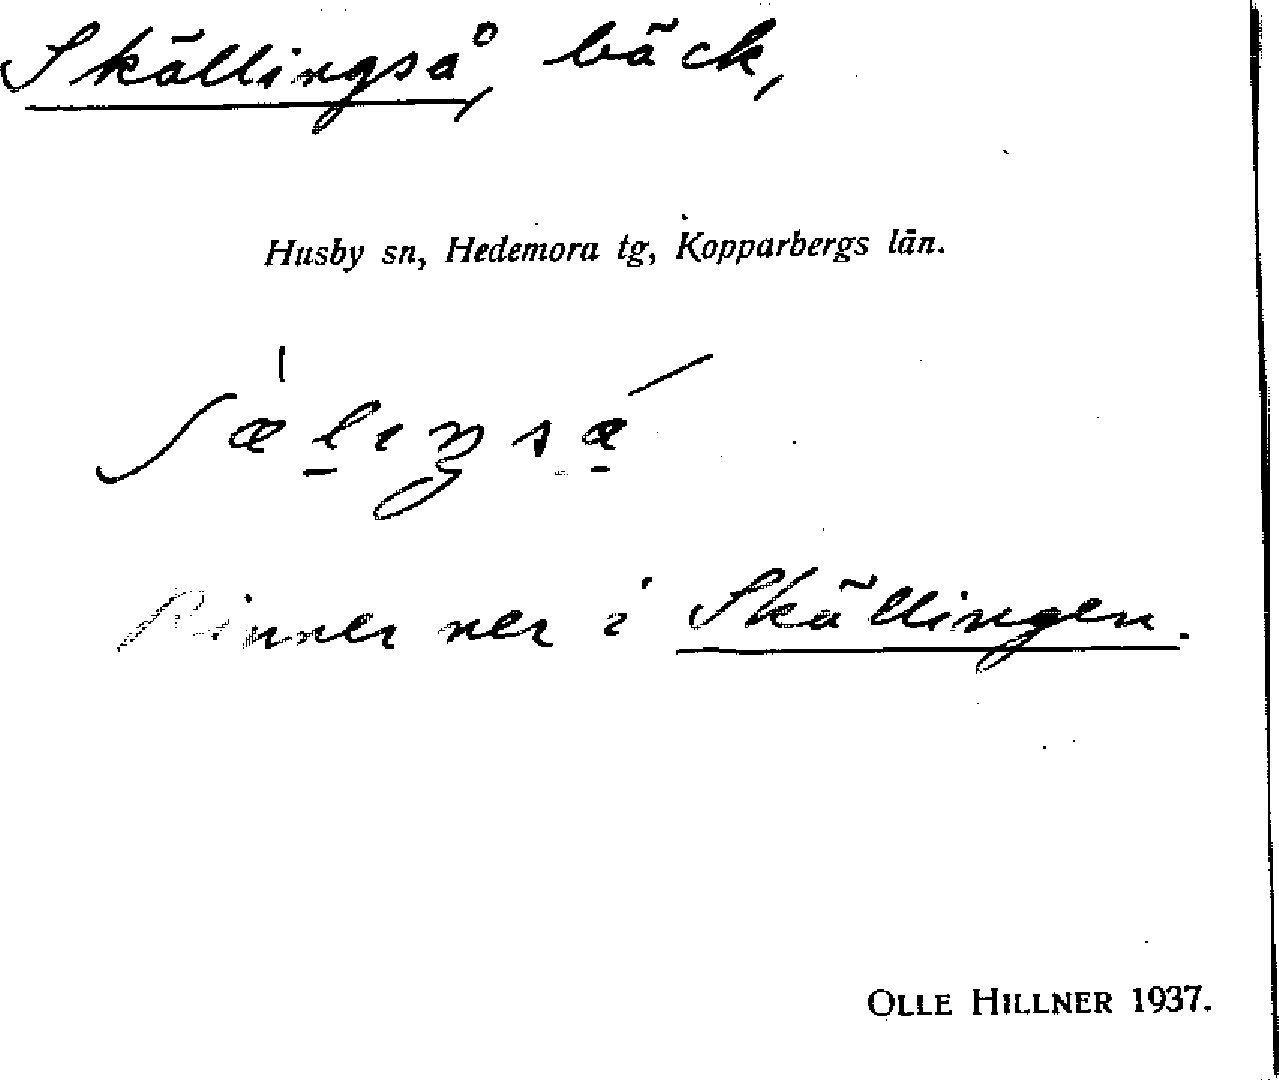 Skällingså, bäck,
Husby sn, Hedemora tg, Kopparbergs län.
Rinner ner i Skällingen.
OLLE HILLNER 1937.